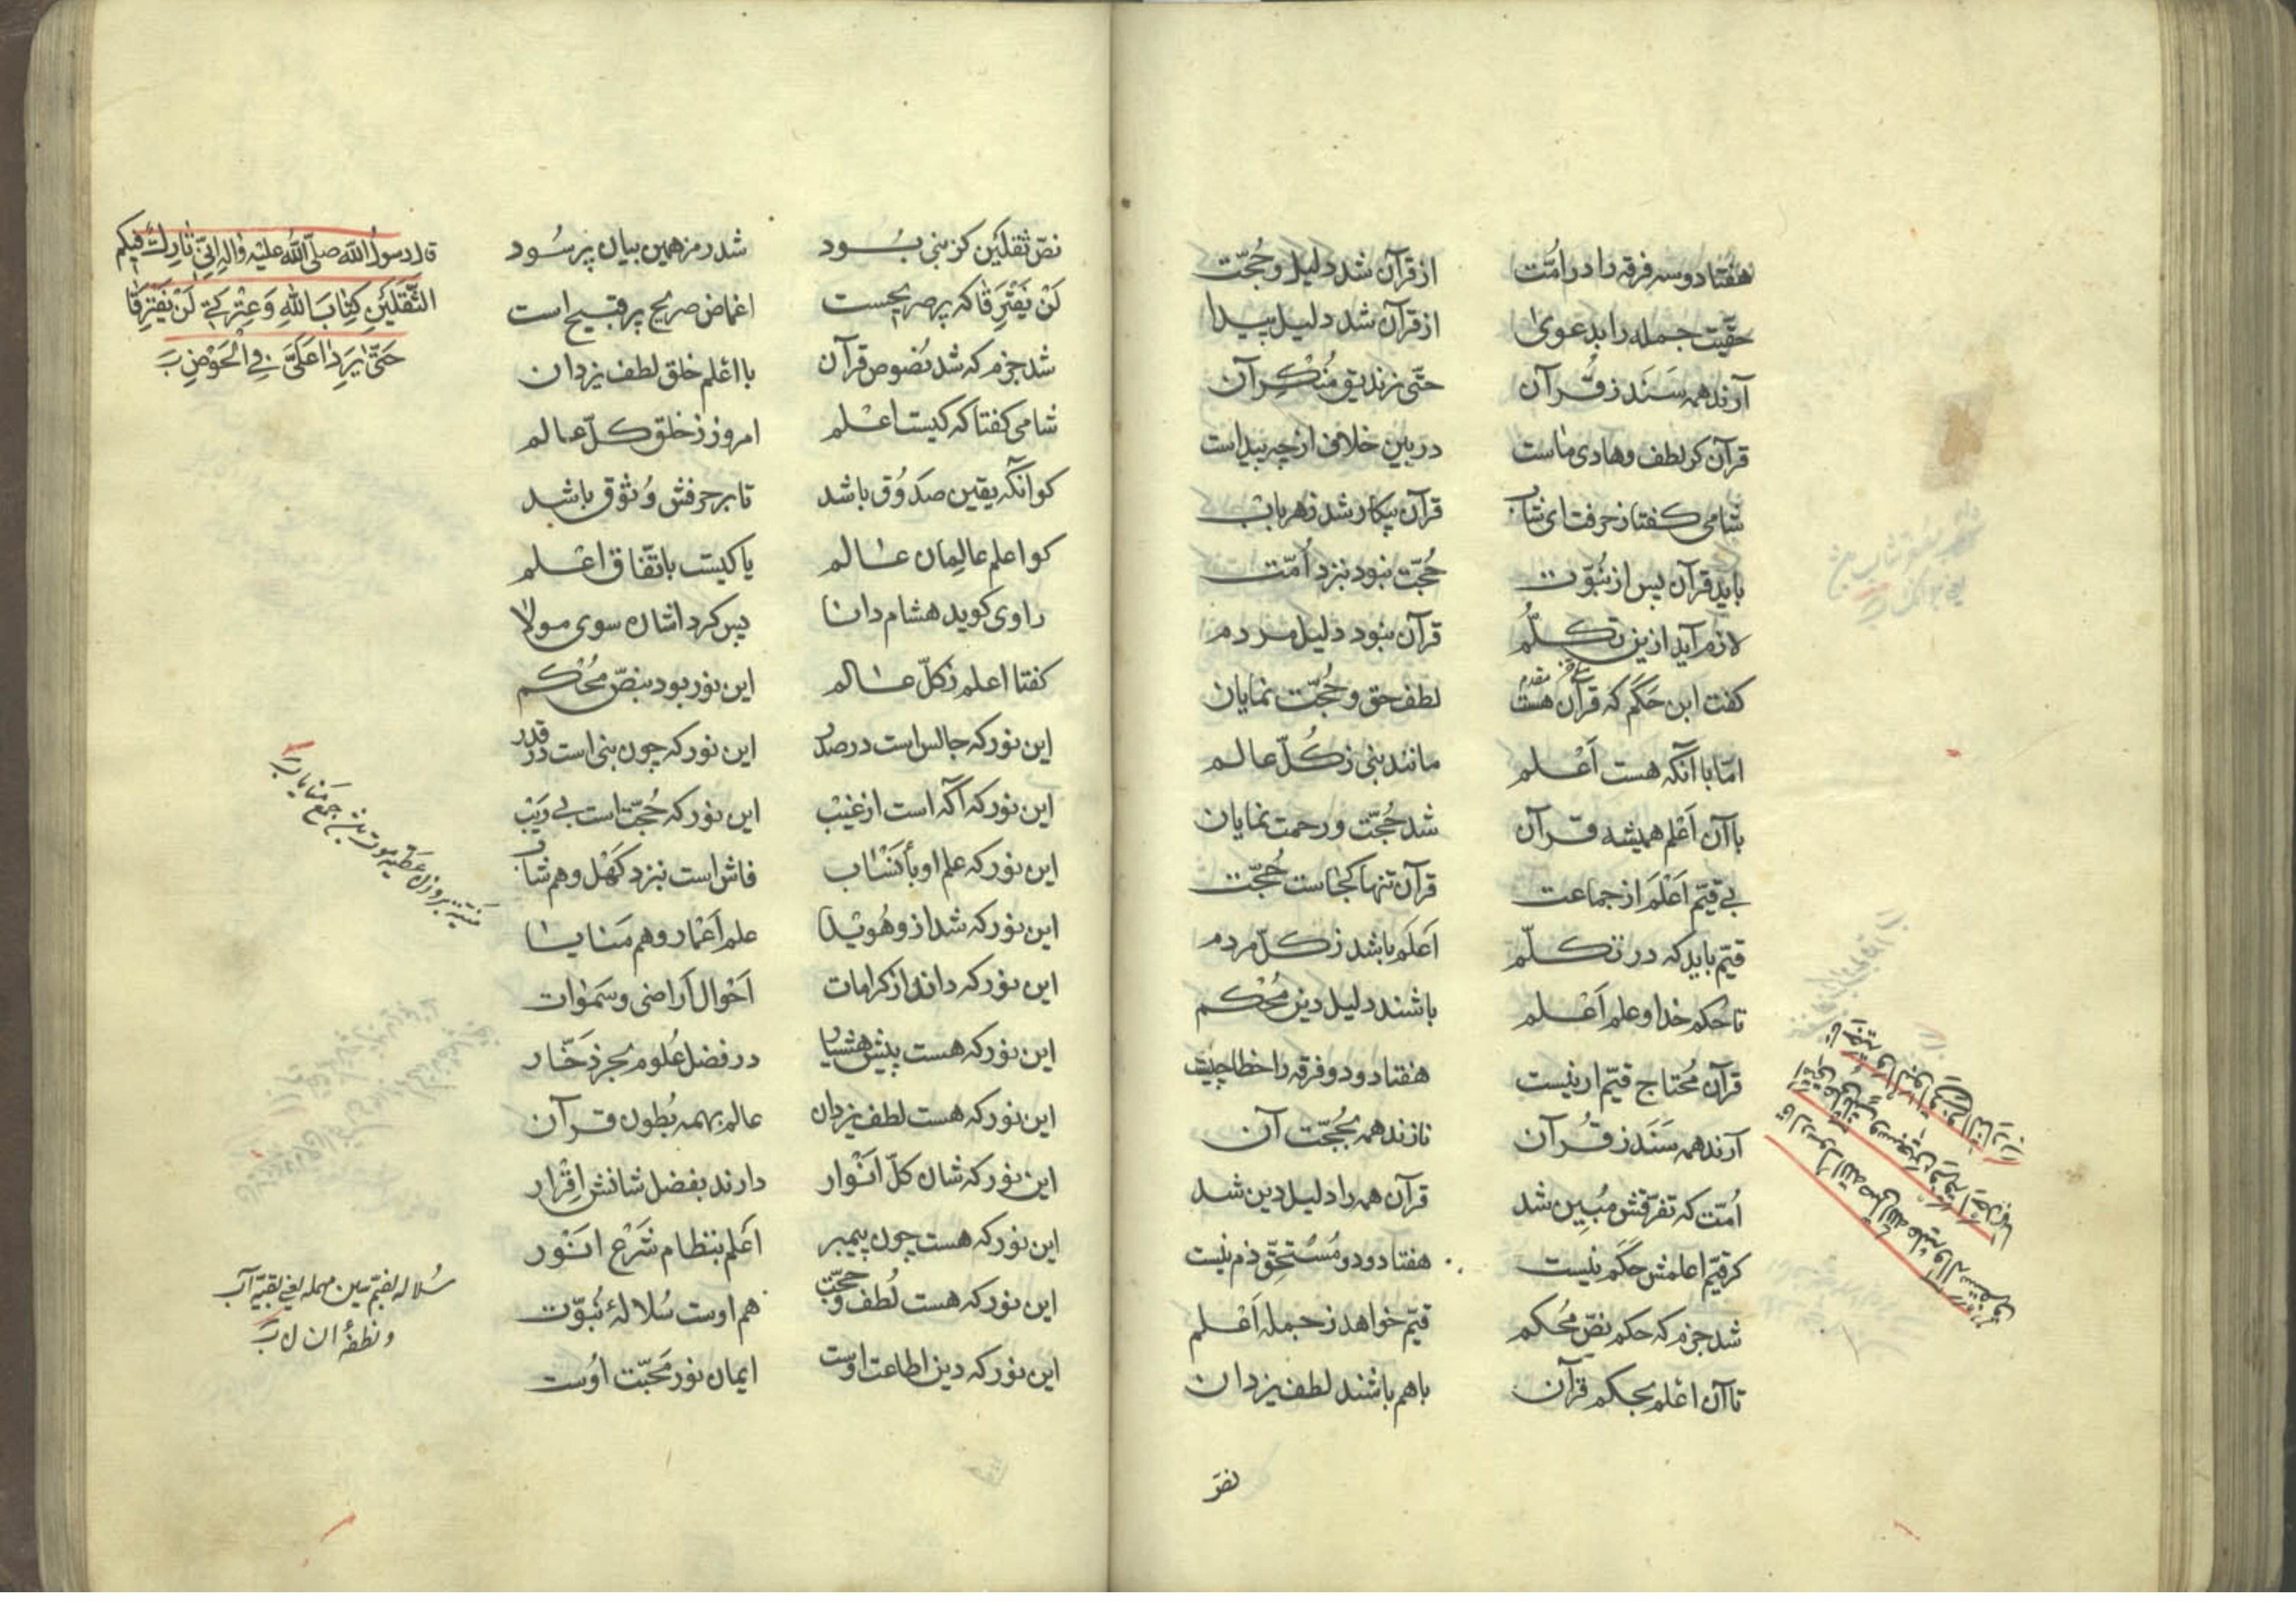 هفتاد و سه فرقه را در امّت از قرآن شد دلیل و حُجّت
حقّیت جمله را بدعوی از قرآن شد دلیل پیدا
آرند همه سَنَد ز قُرآن حتّی زندیق مُنْکِر آن
قرآن کر لطف و هادی ماست در بین خلافی از چه پیداست
شامی کفتا ز حرفت ای شاب قرآن بیکار شد ز هر باب
باید قرآن پس از نبُوّت حُجّت نبود نبزد اُمّت
لازم آید ازین تکلُّم قرآن نبود دلیل مردم
کفت ابن حَکَم که قرآن هست لطف حق و حُجّت نمایان
امّا با آنکه هست اَعْلم مانند نبی ز کُلّ عالم
با آن اَعْلم همیشه قرآن شد حُجّت و رحمت نمایان
بی قیّم اَعْلَم از جماعت قرآن تنها کجاست حُجّت
قیّم باید که در تکلّم اَعلَم باشد ز کلّ مردم
تا حکم خدا و علم اَعْلم باشند دلیل دین مُحْکم
قرآن مُحتاج قیّم ار نیست هفتاد و دو فرقه را خطا چیست
آرند همه سَنَد ز قُرآن نازند همه بحُجّت آن
اُمّت که تفرّقش مُبین شد قرآن همه را دلیل دین شد
کر قیّم اعلمش حَکَم نیست هفتاد و دو مُسْتحقّ ذم نیست
شد جزم که حکم نصّ مُحکم قیّم خواهد ز جمله اَعْلم
تا آن اعْلم بحکم قرآن با هم باشند لطف یزدان
نصّ
نصّ ثقلَین کز نبی بود شد رمز همین بیان پر سُود
لَنْ یَفْتَرِقا که پر صریحست اغماض صریح پر قبیح است
شد جزم که شد نُصوص قرآن با اعْلم خلق لطف یزدان
شامی کفتا که کیست اعْلم امروز ز خلق کلّ عالم
کو آنکه یقین صَدُوق باشد تا بر حرفش وُثوق باشد
کو اعلم عالِمان عالم یا کیست باتّفاق اعْلم
راوی کوید هشام دانا پس کرد اشاره سوی مولا
کفتا اعلم ز کلّ عالم این نور بود بنصّ مُحْکم
این نور که جالس است در صدر این نور که چون نبی است در قدر
این نور که آکه است از غیْب این نور که حُجّت است بی رَیْب
این نور که علم او بأنْساب فاش است نبزد کَهْل و هم شاب
این نور که شد از و هُویْدا علم اَعْمار و هم مَنایا
این نور که داند از کرامات اَحْوال اَراضی و سَمٰوات
این نور که هست پیش هشیار در فضل عُلوم بحر ذخّار
این نور که هست لطف یزدان عالم بهمه بُطون قرآن
این نور که شان کلّ انْوار دارند بفضل شانش اِقْرار
این نور که هست چون پیمبر اَعلم بنظام شَرْع انْور
این نور که هست لُطف و حجّت هم اوست سُلالهٔ نُبوّت
این نور که دین اطاعت اوست ایمان نور مَحبّت اوُست
قال رسولُ الله صلّی اللهُ علیْه واله اِنّی تارِكٌ فیکم
الثَّقَلَیْنِ کِتٰابَ اللهِ وَعِتْرَتی لَنْ یَفْتَرِقا
حَتّٰی یَرِدا عَلَیَّ فِی الْحَوْضِ
سُلاله بضمّ سین مهمله یعنی بقیّه آب
و نطفهٔ